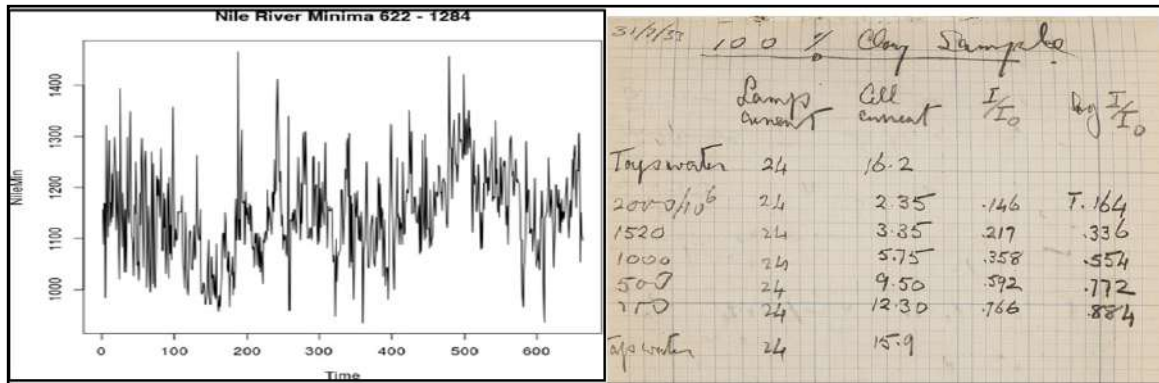 Nile River Minima 622 - 1284
NileMin
1400
1300
1200
1100
1000
0 100 200 300 400 500 600
Time
31/7/53
100 % Clay Sample
Lamp current Cell current I/I₀ Log I/I₀
Tapwater 24 16.2
2000/10⁶ 24 2.35 .146 1̅.164
1520 24 3.35 .217 .336
1000 24 5.75 .358 .554
500 24 9.50 .592 .772
250 24 12.30 .766 .884
Tapwater 24 15.9